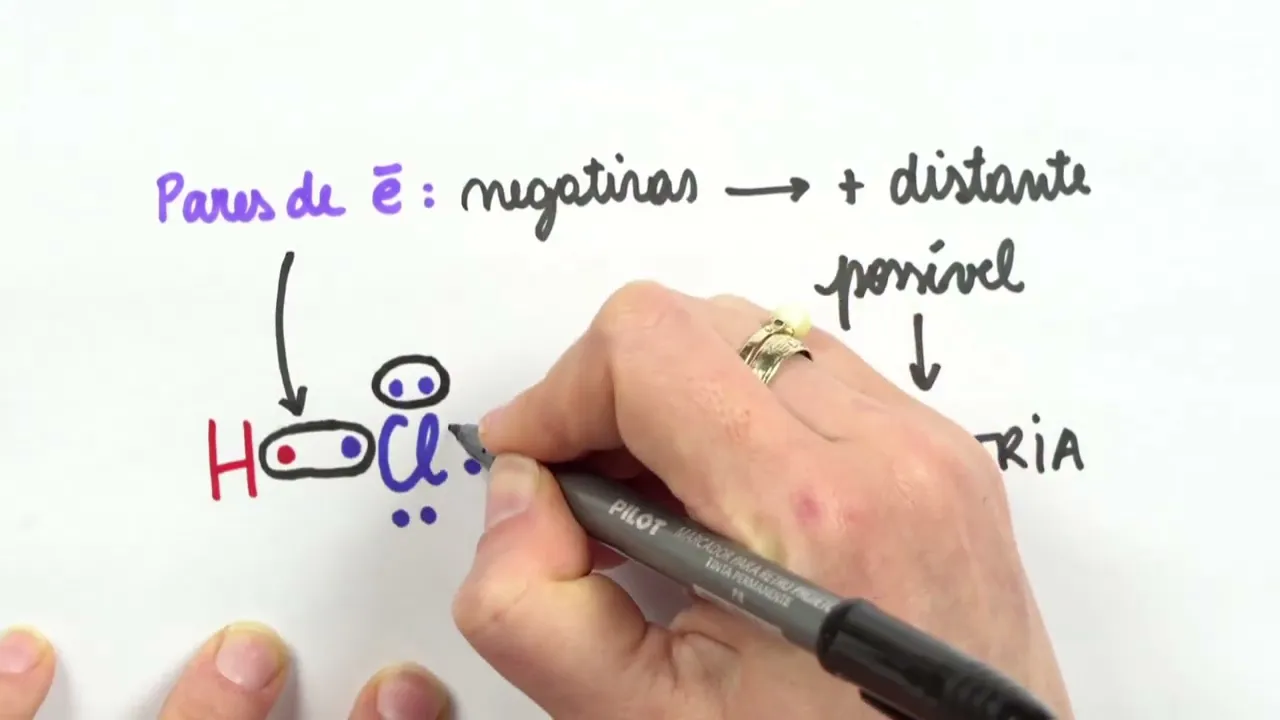 Pares de e̅: negativas → + distante
possível
H Cl
PILOT
MARCADOR PARA RETRO PROJETOR
TINTA PERMANENTE